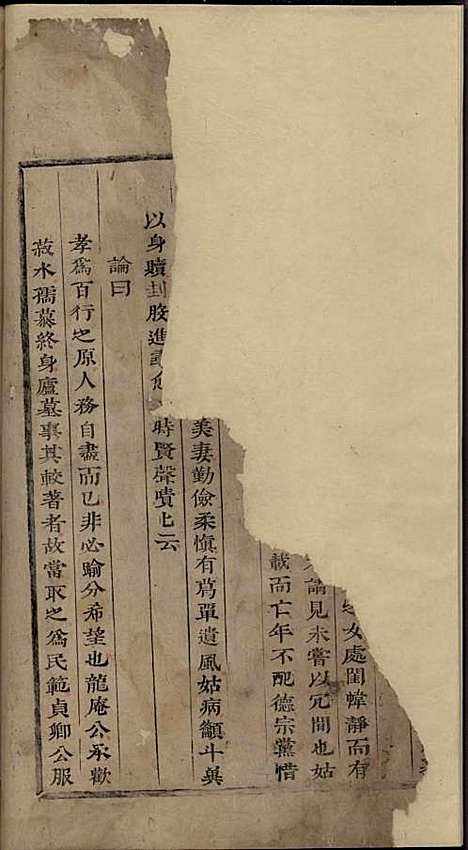 女處閨幃靜而有
謫見未嘗以冗間也姑
載而亡年不配德宗黨惜
美妻勤儉柔愼有爲單遺風姑病籲斗𠔃
以身贖刲股進
時賢聲嘖也云
論曰
孝爲百行之原人務自盡而已非必踰分希望也龍庵公承歡
菽水孺慕終身廬墓事其較著者故當取之爲民範貞卿公服